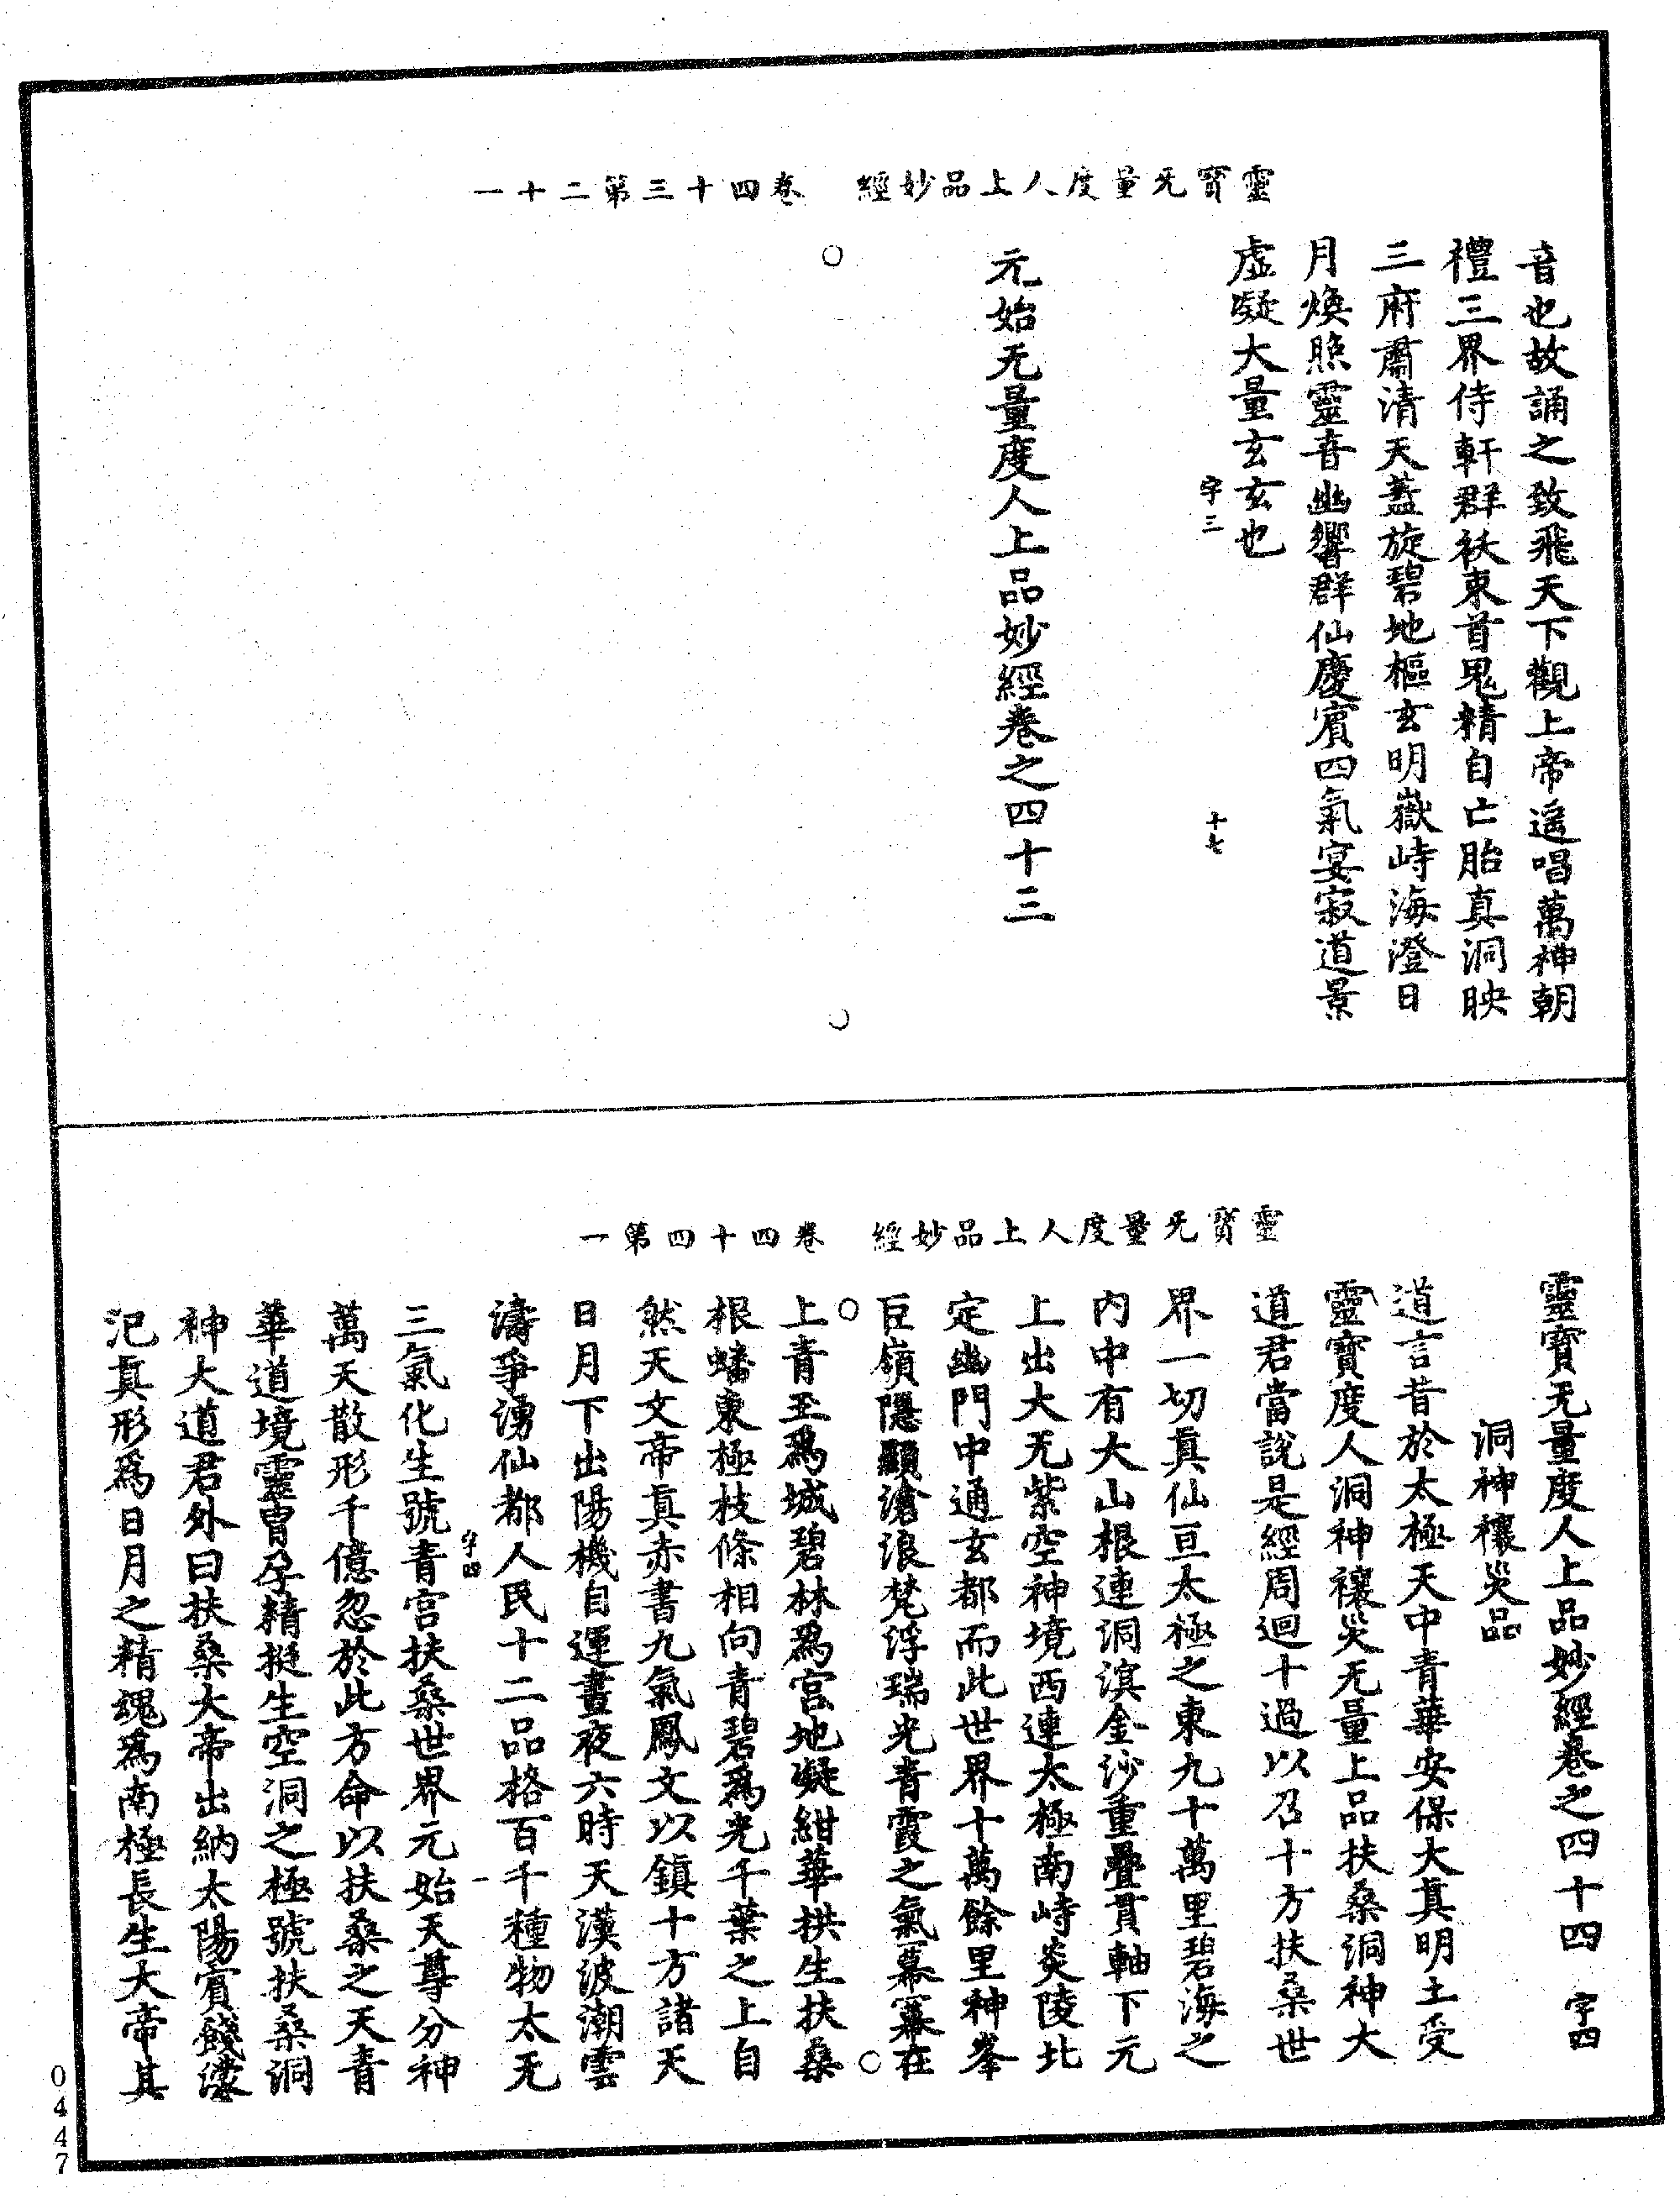 靈寶无量度人上品妙經　卷四十三第二十一
音也故誦之致飛天下觀上帝遥唱萬神朝
禮三界侍軒群袄束首鬼精自亡胎真洞映
三府肅清天蓋旋碧地樞玄明嶽峙海澄日
月煥照靈音幽響群仙慶賓四氣宴寂道景
虛凝大量玄玄也
字三　十七
元始无量度人上品妙經卷之四十三
靈寶无量度人上品妙經　卷四十四第一
靈寶无量度人上品妙經卷之四十四　字四
洞神禳災品
道言昔於太極天中青華安保大真明土受
靈寶度人洞神禳災无量上品扶桑洞神大
道君當說是經周迴十過以召十方扶桑世
界一切真仙亘太極之東九十萬里碧海之
内中有大山根連洞濵金沙重疊貫軸下元
上出大无紫空神境西連太極南峙炎陵北
定幽門中通玄都而此世界十萬餘里神峯
巨嶺隱顯滄浪梵浮瑞光青霞之氣冪冪在
上青玉為城碧林為宮地凝紺華拱生扶桑
根蟠東極枝條相向青碧為光千葉之上自
然天文帝真赤書九氣鳳文以鎮十方諸天
日月下出陽機自運晝夜六時天漢波潮雲
濤爭湧仙都人民十二品格百千種物太无
字四　一
三氣化生號青宮扶桑世界元始天尊分神
萬天散形千億忽於此方命以扶桑之天青
華道境靈胄孕精挺生空洞之極號扶桑洞
神大道君外曰扶桑大帝出納太陽賓餞濛
汜真形為日月之精魂為南極長生大帝其
0447